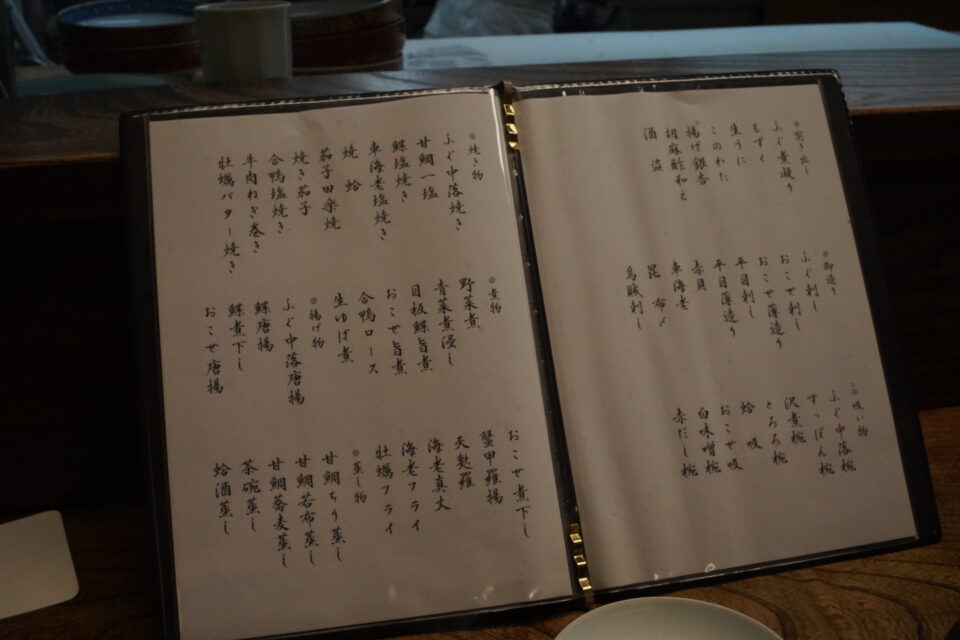 ◎突き出し
ふぐ煮凝り
もずく
生うに
このわた
揚げ銀杏
胡麻酢和え
酒盗
◎御造り
ふぐ刺し
おこぜ刺し
おこぜ薄造り
平目刺し
平目薄造り
赤貝
車海老
昆布〆
烏賊刺し
◎吸い物
ふぐ中落椀
すっぽん椀
沢煮椀
とろろ椀
蛤吸
おこぜ吸
白味噌椀
赤だし椀
◎焼き物
ふぐ中落焼き
甘鯛一塩
鰈塩焼き
車海老塩焼き
焼蛤
茄子田楽焼
焼き茄子
合鴨塩焼き
牛肉ねぎ巻き
牡蠣バター焼き
◎煮物
野菜煮
青菜煮浸し
目板鰈旨煮
おこぜ旨煮
合鴨ロース
生ゆば煮
◎揚げ物
ふぐ中落唐揚
鰈唐揚
鰈煮下し
おこぜ唐揚
おこぜ煮下し
蟹甲羅揚
天麩羅
海老真丈
海老フライ
牡蠣フライ
◎蒸し物
甘鯛ちり蒸し
甘鯛若布蒸し
甘鯛蕎麦蒸し
茶碗蒸し
蛤酒蒸し